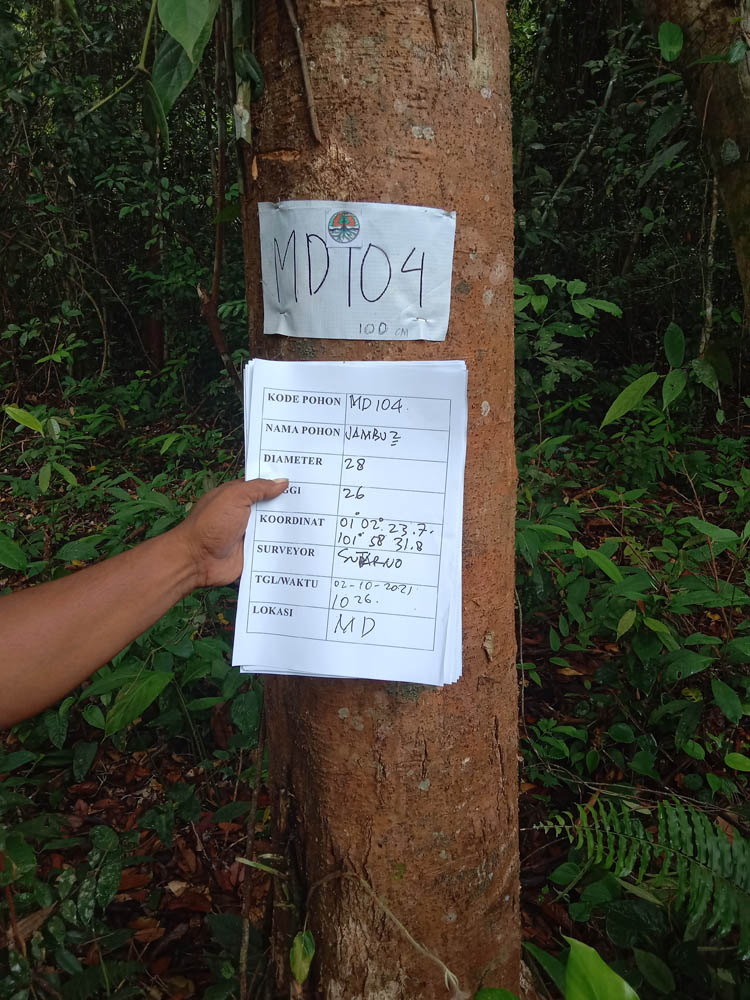 MD104
100 CM
KODE POHON MD104.
NAMA POHON JAMBU2
DIAMETER 28
GGI 26
KOORDINAT 01° 02° 23.7.
101° 58 31.8
SURVEYOR SUTARNO
TGL/WAKTU 02-10-2021
1026.
LOKASI MD